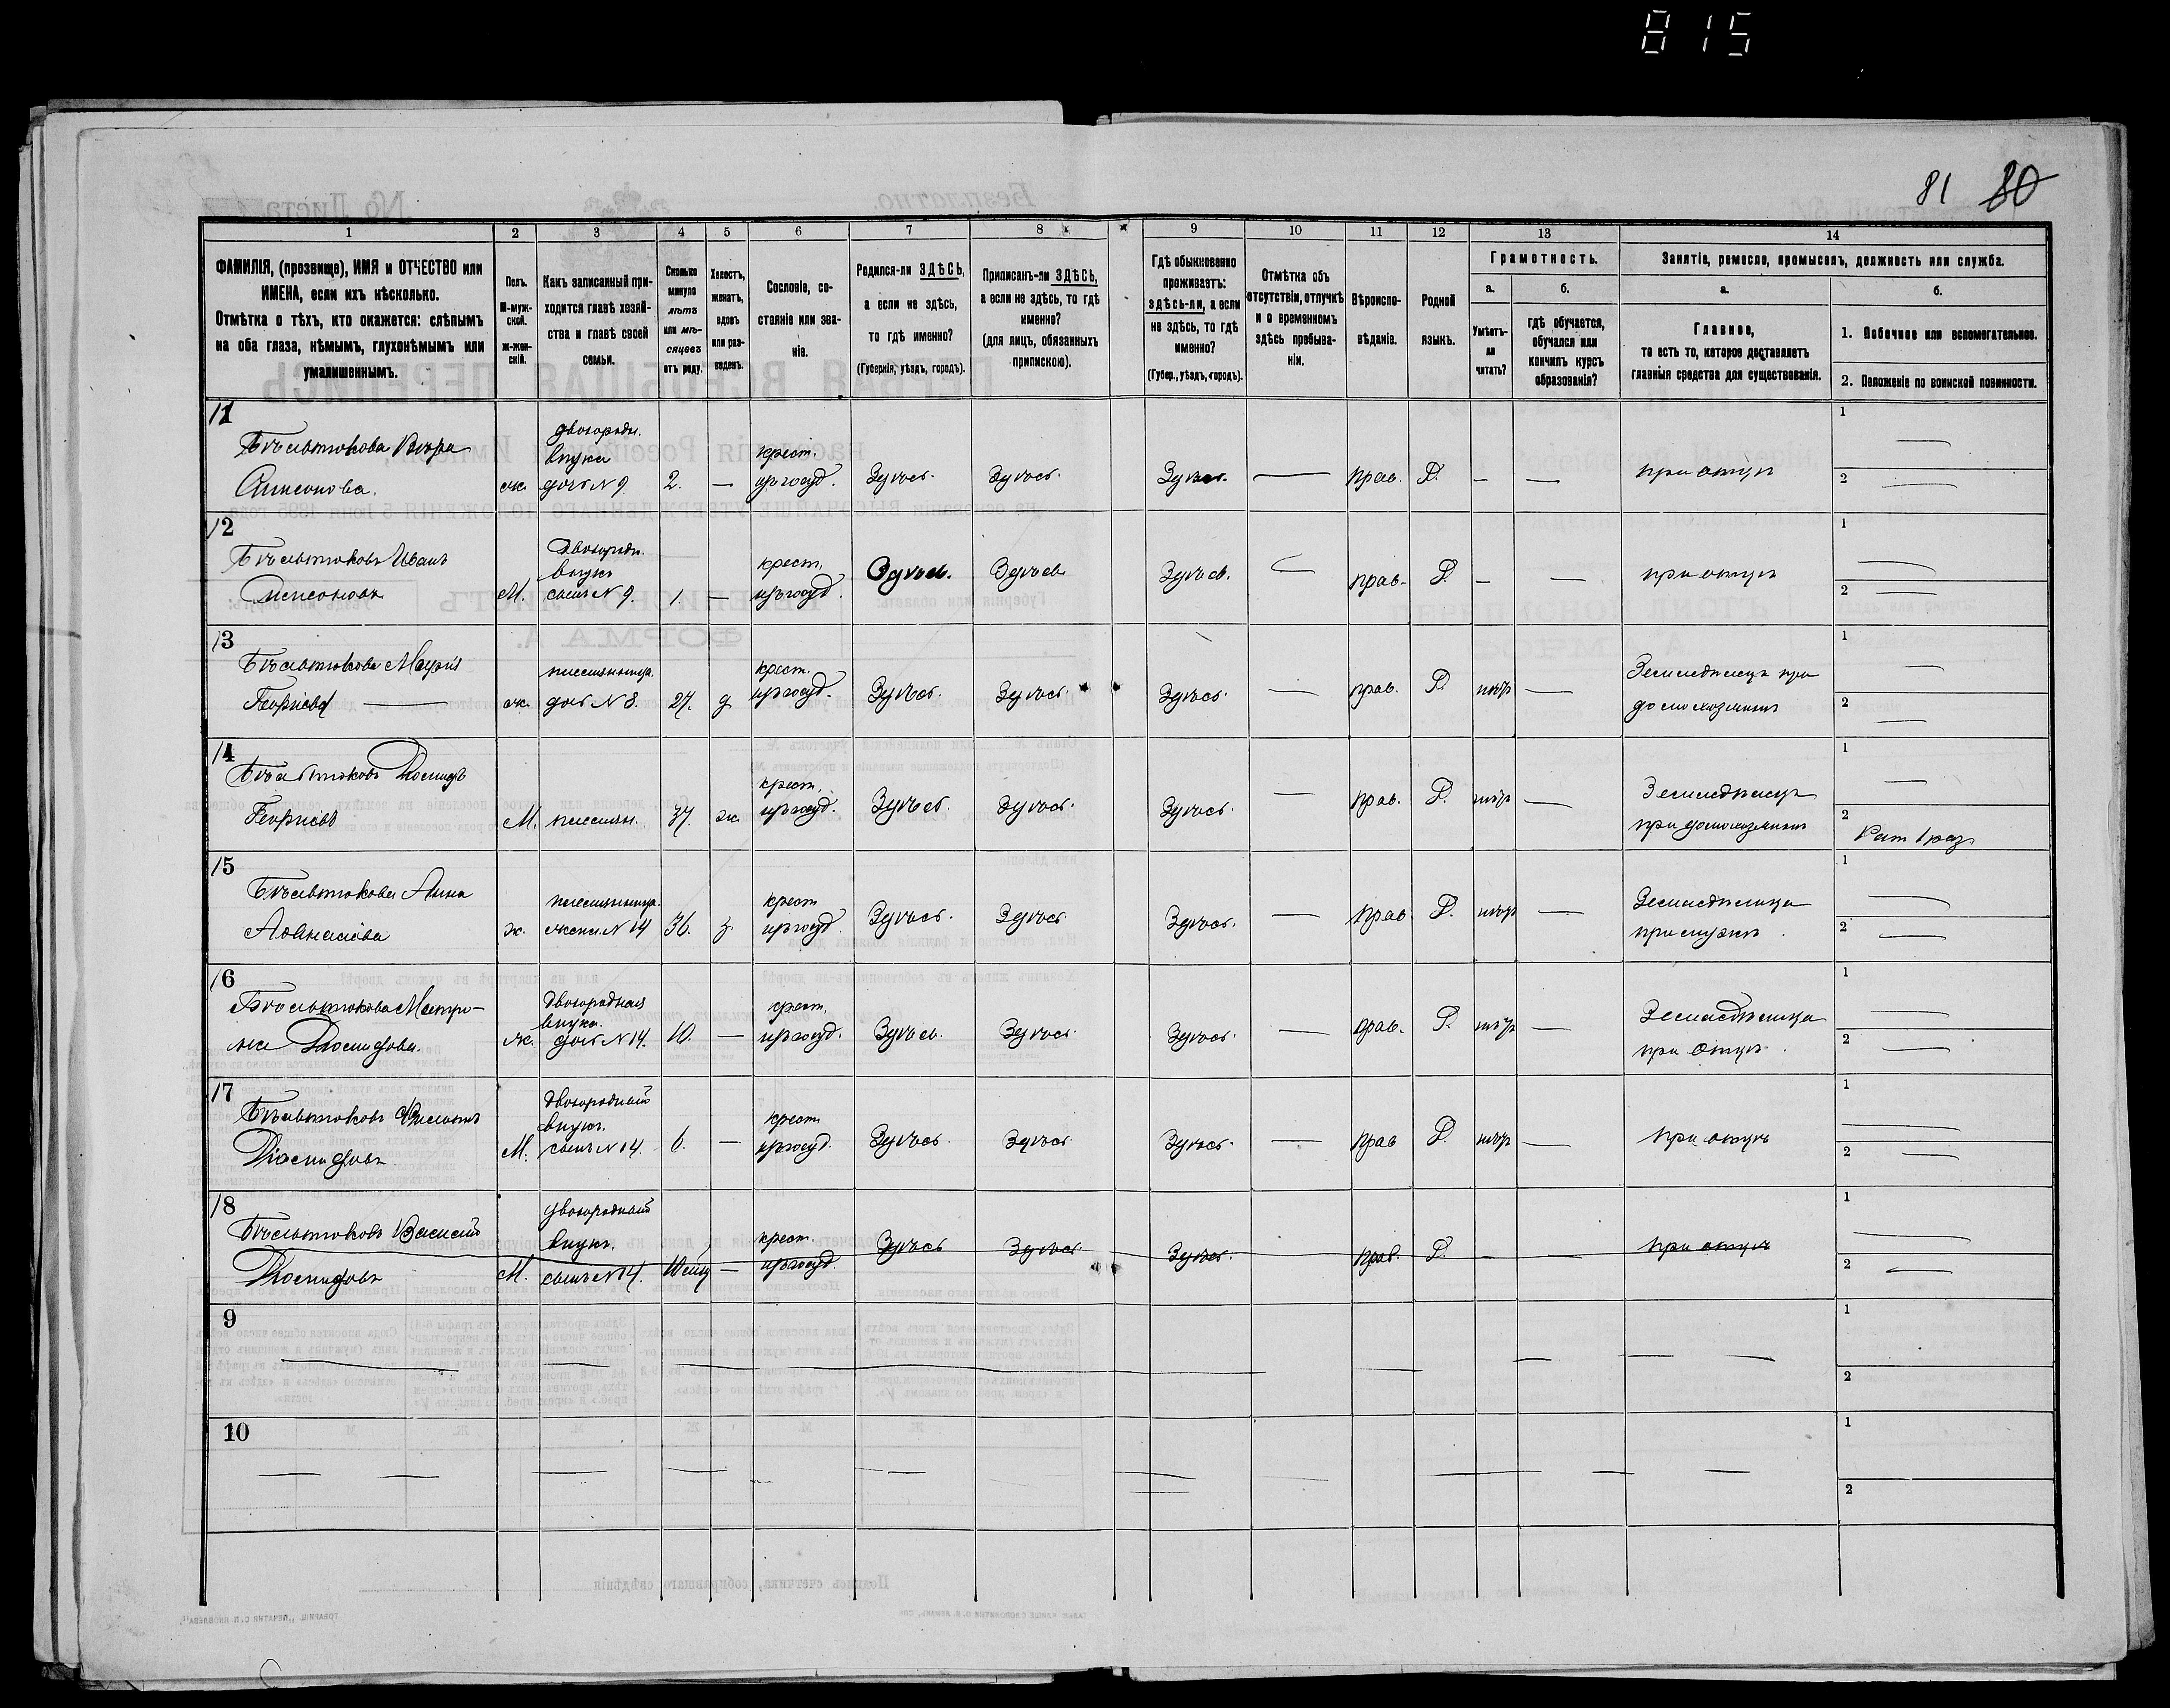 815
81 80
1 2 3 4 5 6 7 8 9 10 11 12 13 14
ФАМИЛІЯ, (прозвище), ИМЯ и ОТЧЕСТВО или
ИМЕНА, если ихъ нѣсколько.
Отмѣтка о тѣхъ, кто окажется: слѣпымъ
на оба глаза, нѣмымъ, глухонѣмымъ или
умалишеннымъ.
Полъ.
М-муж-
ской.
ж-жен-
скій.
Какъ записанный при-
ходится главѣ хозяй-
ства и главѣ своей
семьи.
Сколько
минуло
лѣтъ
или мѣ-
сяцевъ
отъ роду.
Холостъ,
женатъ,
вдовъ
или раз-
веденъ.
Сословіе, со-
стояніе или зва-
ніе.
Родился-ли ЗДѢСЬ,
а если не здѣсь,
то гдѣ именно?
(Губернія, уѣздъ, городъ).
Приписанъ-ли ЗДѢСЬ,
а если не здѣсь, то гдѣ
именно?
(для лицъ, обязанныхъ
припискою).
Гдѣ обыкновенно
проживаетъ:
здѣсь-ли, а если
не здѣсь, то гдѣ
именно?
(Губер., уѣздъ, городъ).
Отмѣтка объ
отсутствіи, отлучкѣ
и о временномъ
здѣсь пребыва-
ніи.
Вѣроиспо-
вѣданіе.
Родной
языкъ.
Грамотность.
а.
Умѣетъ-
ли
читать?
б.
гдѣ обучается,
обучался или
кончилъ курсъ
образованія?
Занятіе, ремесло, промыселъ, должность или служба.
а.
Главное,
то есть то, которое доставляетъ
главныя средства для существованія.
б.
1. Побочное или вспомогательное.
2. Положеніе по воинской повинности.
11
Бѣлавтюкова Вѣра
ж. двоюродн.
внука
дочь N 9. 2. — крест.
из госуд. Здѣсь. Здѣсь. Здѣсь. — прав. Р. — — при отцѣ
1 —
2 —
12
Бѣлавтюковъ Иванъ
М. Двоюродн.
внукъ
сынъ N 9. 1. — крест.
из госуд. Здѣсь. Здѣсь. Здѣсь. — прав. Р. — — при отцѣ
1 —
2 —
13
Бѣлавтюкова Марія
Георгіева —
ж. племянница.
дочь N 8. 27. д крест.
из госуд. Здѣсь. Здѣсь. Здѣсь. — прав. Р. нѣтъ — Земледѣлецъ при
домохозяинѣ
1 —
2 —
14
Бѣлавтюковъ Діомидъ
Георгіевъ
М. племян. 37. ж. крест.
из госуд. Здѣсь. Здѣсь. Здѣсь. — прав. Р. нѣтъ — Земледѣлецъ
при домохозяинѣ
1 —
2 Рат 1 раз
15
Бѣлавтюкова Анна
Аѳанасіева
ж. племянница.
жена N 14 36. з. крест
из госуд. Здѣсь. Здѣсь Здѣсь. — прав. Р. нѣтъ — Земледѣлица
при мужѣ.
1 —
2 —
16
Бѣлавтюкова Матро-
на Діомидова.
ж. Двоюродная
внука.
дочь N 14. 10. — крест.
из госуд. Здѣсь. Здѣсь. Здѣсь. — прав. Р. нѣтъ — Земледѣлица
при отцѣ.
1 —
2 —
17
Бѣлавтюковъ
Діомидовъ
М. Двоюродный
внукъ.
сынъ N 14. 6. — крест
из госуд. Здѣсь Здѣсь Здѣсь. — прав Р. нѣтъ — при отцѣ
1 —
2 —
18
Бѣлавтюковъ Василій
Діомидовъ
М. двоюродный
внукъ.
сынъ N 14. — крест.
из госуд. Здѣсь Здѣсь Здѣсь. прав. Р. — — при отцѣ
1 —
2 —
9
1
2
10
1
2